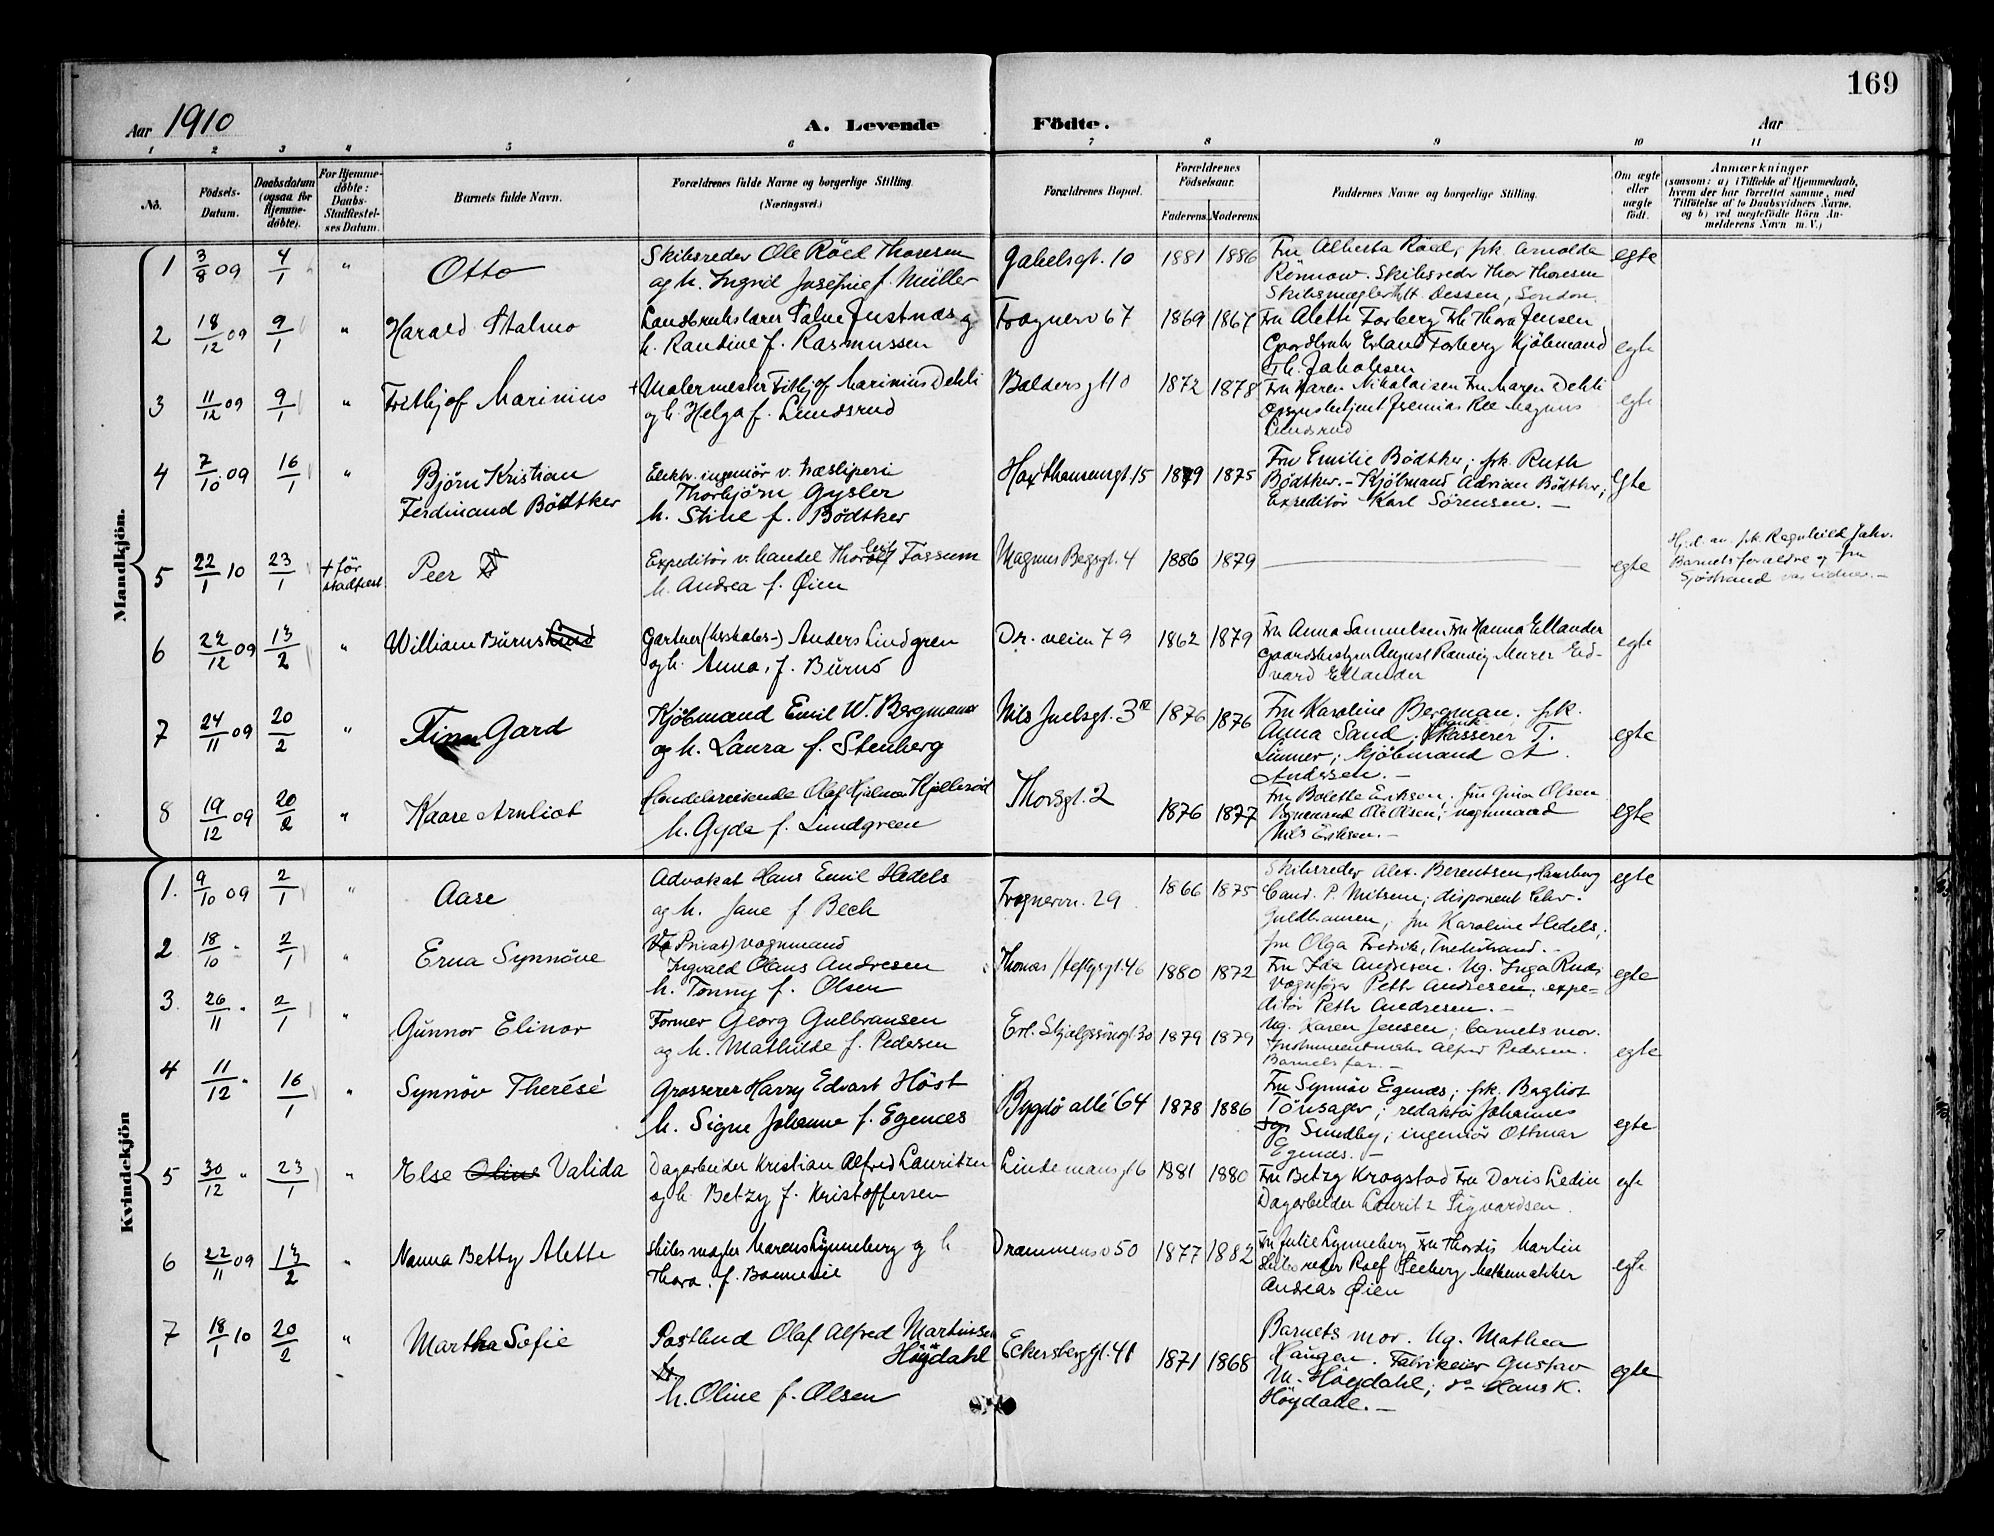 169
Aar 1910 A. Levende Födte. Aar
1 2 3 4 5 6 7 8 9 10 11
No.
Födsels-Datum.
Daabsdatum (ogsaa for Hjemme-døbte).
For Hjemme-døbte: Daabs-Stadfæstel-ses Datum.
Barnets fulde Navn.
Forældrenes fulde Navne og borgerlige Stilling.
(Næringsvei.)
Forældrenes Bopæl.
Forældrenes Födselsaar.
Faderens. Moderens.
Faddernes Navne og borgerlige Stilling.
Om ægte eller uægte født.
Anmærkninger
(saasom: a) i Tilfælde af Hjemmedaab,
hvem der har forrettet samme, med
Tilföielse af to Daabsvidners Navne,
og b) ved uægtefödte Börn An-
melderens Navn m. V.)
Mandkjön.
1 3/8 09 4/1 " Otto
Skibsreder Ole Röed Thoresen
og h. Ingrid Josefine f. Müller
Gabelsgt. 10 1881 1886
Fru Alberta Röed, frk Arnolda
Rönnow. Skibsreder Thor Thoresen
Skibsmægler Dessen, London
egte
2 18/12 09 9/1 " Harald Stalmo
Landbrukslærer Justnæs og
h. Randine f. Rasmussen
Frognerv 67 1869 1867
Fru Alette Forberg Frk Thora Jensen
Gaardbruk Erland Forberg Kjöbmand
Th. Jakobsen
egte
3 11/12 09 9/1 " Frithjof Marinius
+ Malermester Fithjof Marinius Dehli
og h. Helga f. Lundsrud
Baldersgt 10 1872 1878
Fru Karen Nikolaisen Fru Maren Dehli
Opsynsbetjent Jremias Ree Magnus
Lundsrud
egte
4 7/10 09 16/1 " Bjørn Kristian
Ferdinand Bödtker
Elektr. ingeniör v. træsliperi
Thorbjörn Gysler
h. Stine f. Bödtker
Haxthausensgt. 15 1879 1875
Fru Emilie Bödtker; frk Ruth
Bödtker. - Kjöbmand Adrian Bödtker;
Expeditör Karl Sörensen. —
Egte
5 22/1 10 23/1 + för stadfæst. Peer
Expeditör v. handel Thorleif Fossum
h. Andrea f. Öien
Magnus Bergsgt. 4 1886 1879
egte
Hj.d. av frk Ragnhild
Barnets foraldre og fru
Sjöstrand var vidner. —
6 22/12 09 13/2 " William Burns Lind
Gartner Anders Lindgren
og h. Anna, f. Burns
Dr. veien 79 1862 1879
Fru Anna Samuelsen Fru Hanna Ellander
Gaardsbestyrer August Ranvig Murer Ed-
vard Ellander
egte
7 24/11 09 20/2 " Finn Gard
Kjöbmand Emil W. Bergman
og h. Laura f. Stenberg
Nils Juelsgt. 3 1876 1876
Fru Karoline Bergman. frk.
Anna Sand, Bankkasserer T.
Linner; kjöbmand A
Andersen. —
egte
8 19/12 09 20/2 " Kaare Arnliot
Handelsreisende Olaf Hjalmar Kjelleröd
h. Gyda f. Lundgreen
Thorsgt. 2 1876 1877
Fru Bolette Eriksen, fru Gina Olsen
Vognmand Ole Olsen; vognmand
Nils Eriksen. —
egte
Kvindekjön
1. 9/10 09 2/1 " Aase
Advokat Hans Emil Hedels
og h. Jane f Bech
Frognervn. 29 1866 1875
Skibsreder Alex. Berentsen,
Cand. P. Nilsen; disponent Chr.
Guldhausen; fru Karoline Hedels,
fru Olga
egte
2 18/10 " 2/1 " Erna Synnöve
(Privat) vognmand
Ingvald Olaus Andresen
h. Tonny f. Olsen
Thomas Heftysgt. 46 1880 1872
Fru Ida Andresen. Ug. Inga Ruds
Vognförer Peth Andresen; expe=
ditör Peth Andresen. —
egte
3. 26/11 " 2/1 " Gunnor Elinor
Former Georg Gulbransen
og h. Mathilde f. Pedersen
Erl. Skjalgssönsgt. 30 1879 1879
Ug. Karen Jensen; barnets mor.
Instrumentmaker Alfred Pedersen.
Barnets far. —
egte
4 11/12 " 16/1 " Synnöv Therésé
Grosserer Harry Edvart Höst
h. Signe Johanne f. Egenæs
Bygdö allé 64 1878 1886
Fru Synnöv Egenæs; frk. Bergliot
Tönsager; redaktör Johannes
Sundby; ingeniör Ottmar
Egenæs. —
egte
5 30/12 " 23/1 " Else Oline Valida
Dagarbeider Kristian Alfred Lauritzen
og h. Betzy f. Kristoffersen
Lindemansgt 6 1881 1880
Fru Betzy Krogstad Fru Doris Ledin
Dagarbeider Lauritz Sigvardsen
egte
6 22/11 09 13/2 " Nanna Betty Alette
Skibsmægler Marens Lynneberg og h
Thora, f. Bonnevie
Drammensv 50 1877 1882
Fru Julie Lynneberg Fru Thordis Martin
Skibsreder Roef Seeberg Mathematiker
Andreas Öien
egte
7 18/1 10 20/2 " Martha Sofie
Postbud Olaf Alfred Martinsen
Höydahl
h. Oline f. Olsen
Eckersbergsgt. 41 1871 1868
Barnets mor. Ug. Mathea
Haugen. Fabrikeier Gustav
M. Höydahl; do Hans K.
Höydahl. —
egte